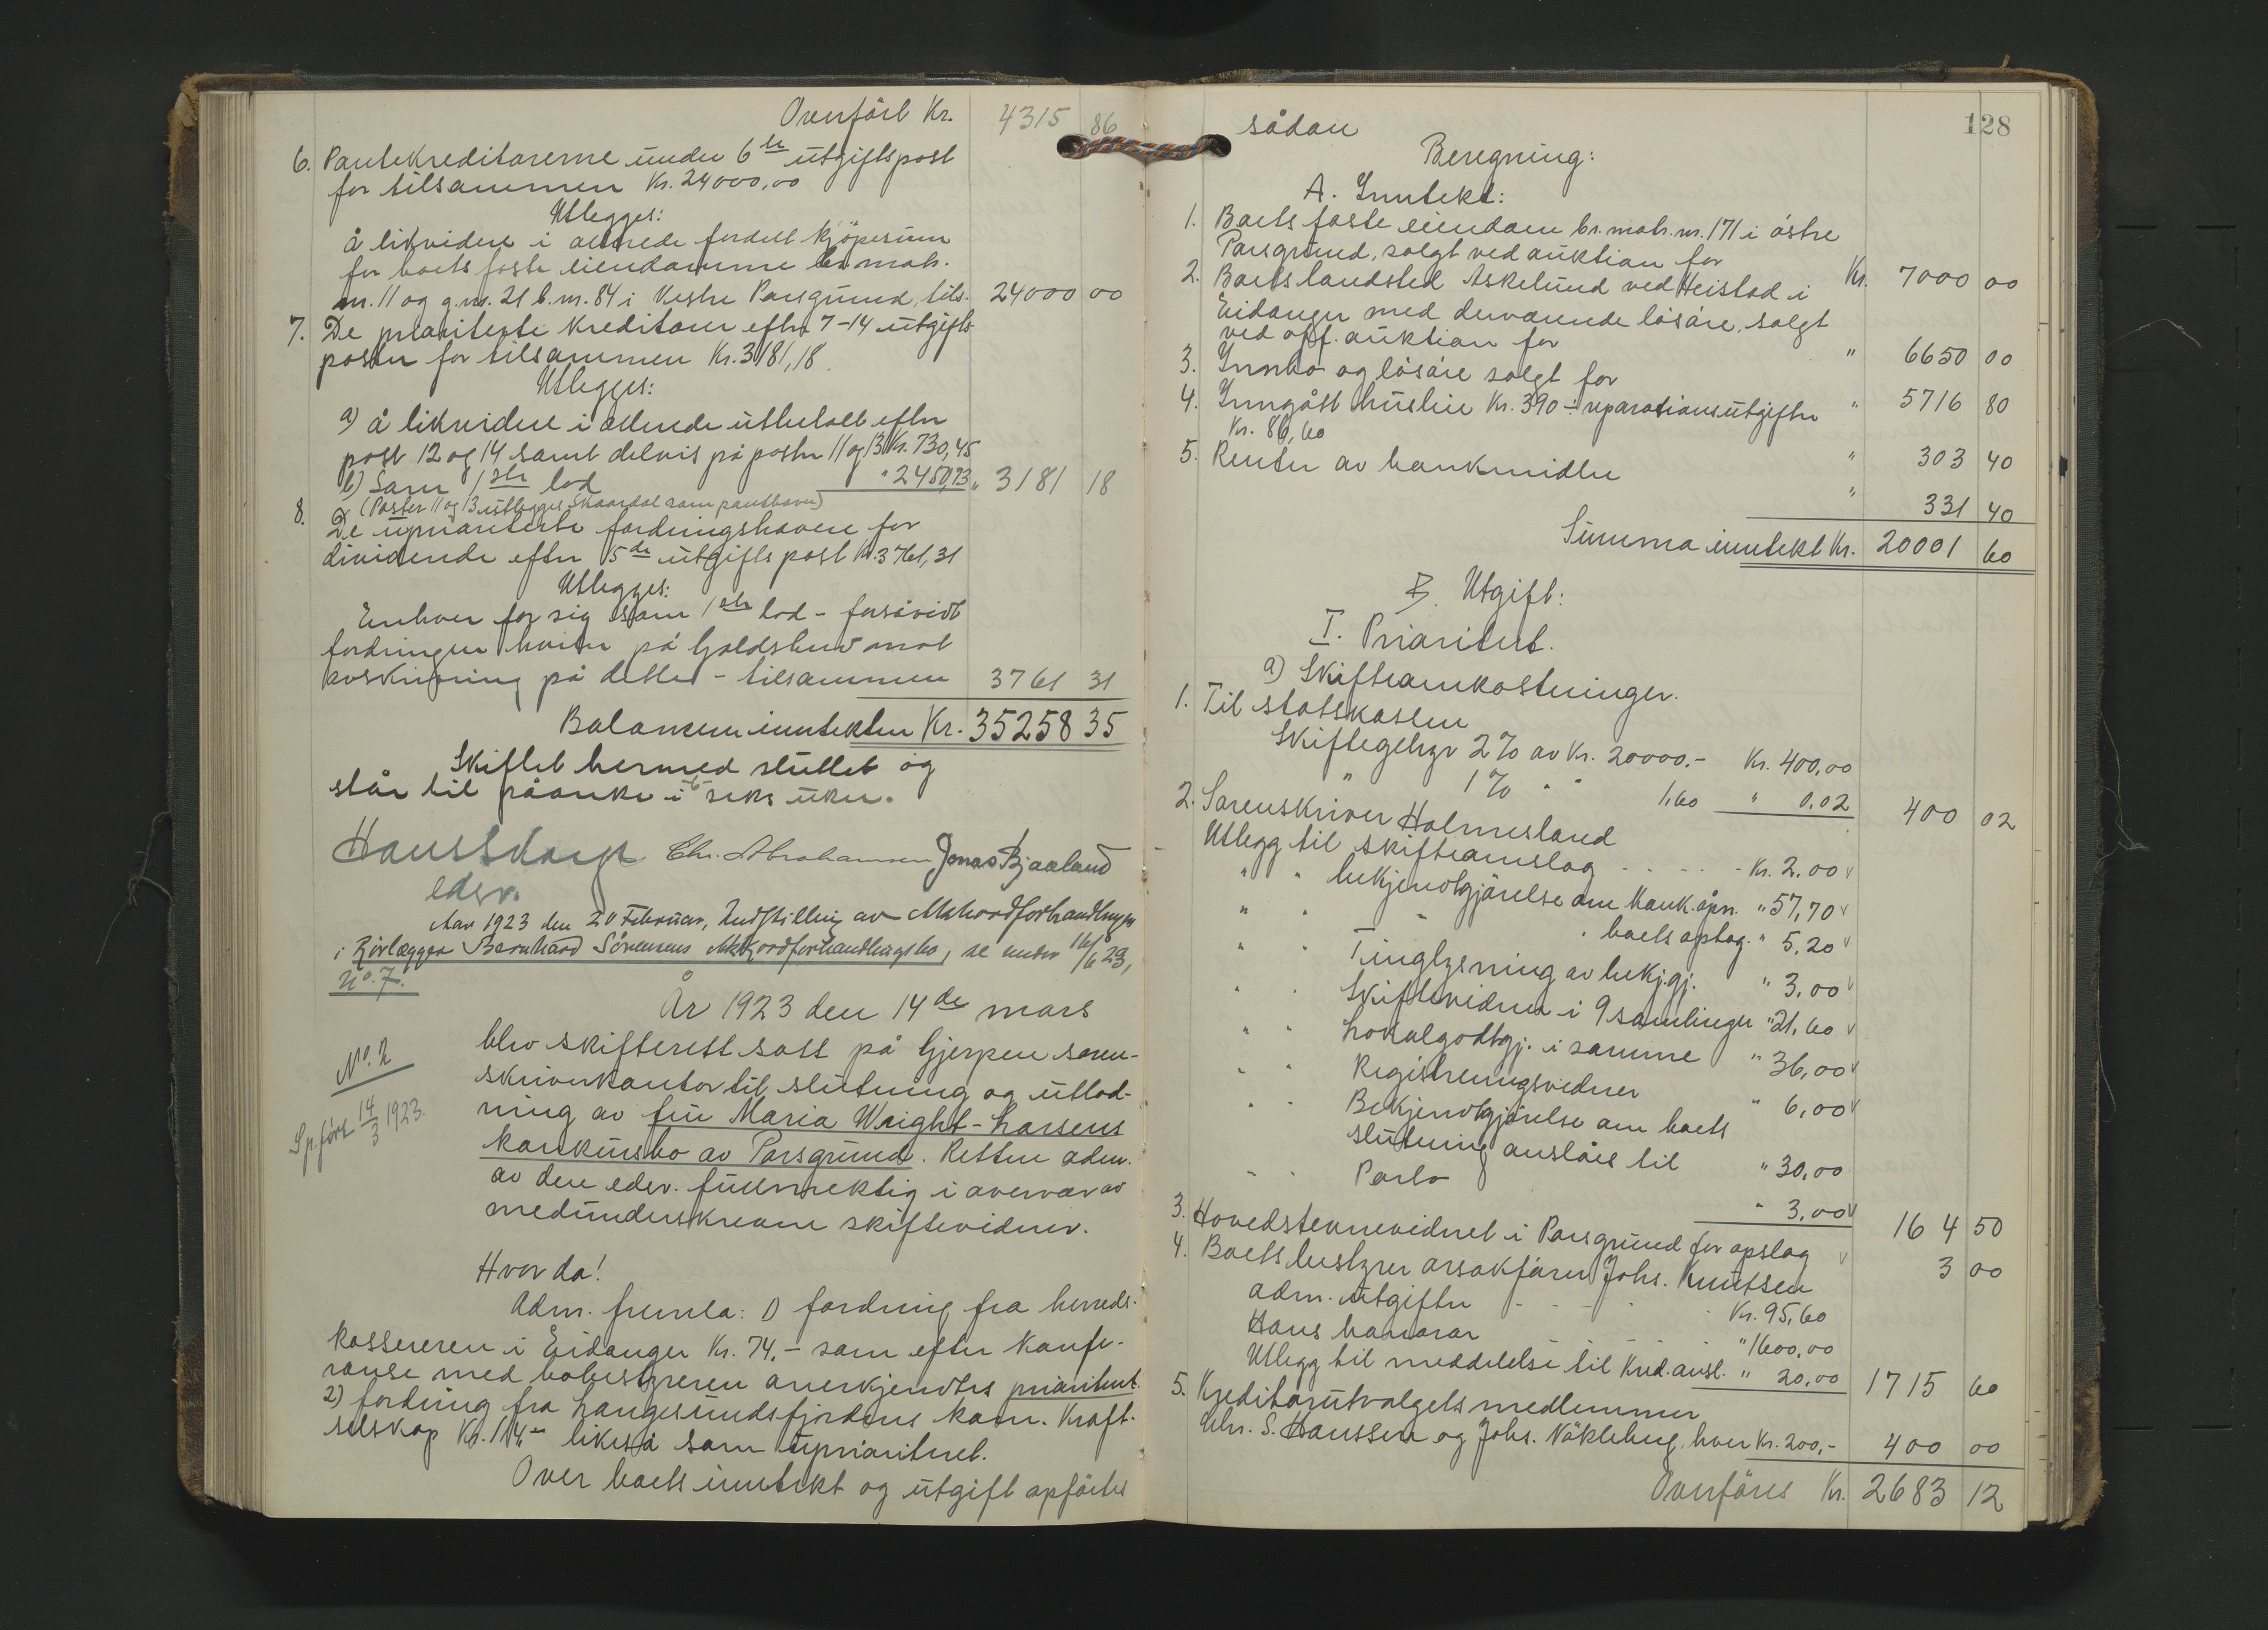 Overfört Kr. 4315 86
6. Pantekreditorerne under 6te utgiftspost
for tilsammen Kr. 24000,00
Utlegges:
å likvidere i allerede fordelt kjöpesum
for boets faste eiendomme br. matr.
nr. 11 og g.nr. 21 b.nr. 84 i Vestre Porsgrund, tils. 24000 00
7. De prioriterte kreditorer efter 7-14 utgifts-
poster for tilsammen Kr. 3181,18.
Utlegges:
a) å likvidere i allerede utbetalt efter
post 12 og 14 samt delvis på poster 11 og 13 Kr. 730,45
b) Som 1ste lod " 2450,73 " 3181 18
(Poster 11 og 13 utlegges Skaardal som panthaver)
8. De uprioriterte fordringshavere for
dividende efter 15de utgiftspost Kr. 3761,31
Utlegges:
Enhver for sig som 1ste lod - forsåvidt
fordringen hviler på gjeldsbrev mot
avskrivning på dette - tilsammen 3761 31
Balancen inntekten Kr. 35258 35
Skiftet hermed sluttet og
står til påanke i 6 seks uker.
Chr. Abrahamsen Jonas Bjaaland
edsv.
Aar 1923 den 20 Februar, Indstilling av Akkordforhandlinger
i Rörlægger Bernhard Sörensens Akkordforhandlingsbo, se under 16/6 23,
No. 7.
År 1923 den 14de mars
No. 2
blev skifterett satt på Gjerpen soren-
skriverkontor til slutning og utlod-
Sp. förs 14/3 1923.
ning av fru Maria Wright-Larsens
konkursbo av Porsgrund. Retten adm.
av den edsv. fullmektig i overvær av
medunderskrevne skiftevidner.
Hvor da!
Adm. fremla: 1) fordring fra herreds-
kassereren i Eidanger Kr. 74,- som efter konfe-
ranse med bobestyreren anerkjendtes prioritert.
2) fordring fra Langesundsfjordens kom. Kraft-
selskap Kr. 114,- likeså som uprioritert.
Over boets inntekt og utgift opförtes
128
sådan
Beregning:
A. Inntekt:
1. Boets faste eiendom br. matr. nr. 171 i östre
Porsgrund, solgt ved auktion for Kr. 7000 00
2. Boets landsted Askelund ved Heistad i
Eidanger med derværende lösöre, solgt
ved off. auktion for " 6650 00
3. Innbo og lösöre solgt for " 5716 80
4. Inngått husleie Kr. 390 ÷ reparationsutgifter
Kr. 86,60 " 303 40
5. Renter av bankmidler " 331 40
Summa inntekt Kr. 20001 60
B. Utgift:
I. Prioritert.
a) Skifteomkostninger.
1. Til statskassen
Skiftegebyr 2% av Kr. 20000.- Kr. 400,00
" 1% " " 1,60 " 0,02 400 02
2. Sorenskriver Holmesland
Utlegg til skifteomslag - - - - Kr. 2,00
" " bekjendtgjörelse om konk. åpn. " 57,70
" " " " boets oplag. " 5,20
" " Tinglysning av bekj.gj. " 3,00
" " Skiftevidner i 9 samlinger " 21,60
" " Lokalgodtgj. i samme " 36,00
" " Registreringsvidner " 6,00
" " Bekjendtgjörelse om boets
slutning anslåes til " 30,00
" " Porto " 3,00 164 50
3. Hovedstevnevidnet i Porsgrund for opslag 3 00
4. Boets bestyrer orsakförer Johs. Knutsen
adm. utgifter - - - Kr. 95,60
Hans honorar - - - " 1600,00
Utlegg til meddelelse til Kred. ansl. " 20,00 1715 60
5. Kreditorutvalgets medlemmer
Chr. S. Hanssen og Johs. Nökleberg, hver Kr. 200,- 400 00
Overföres Kr. 2683 12